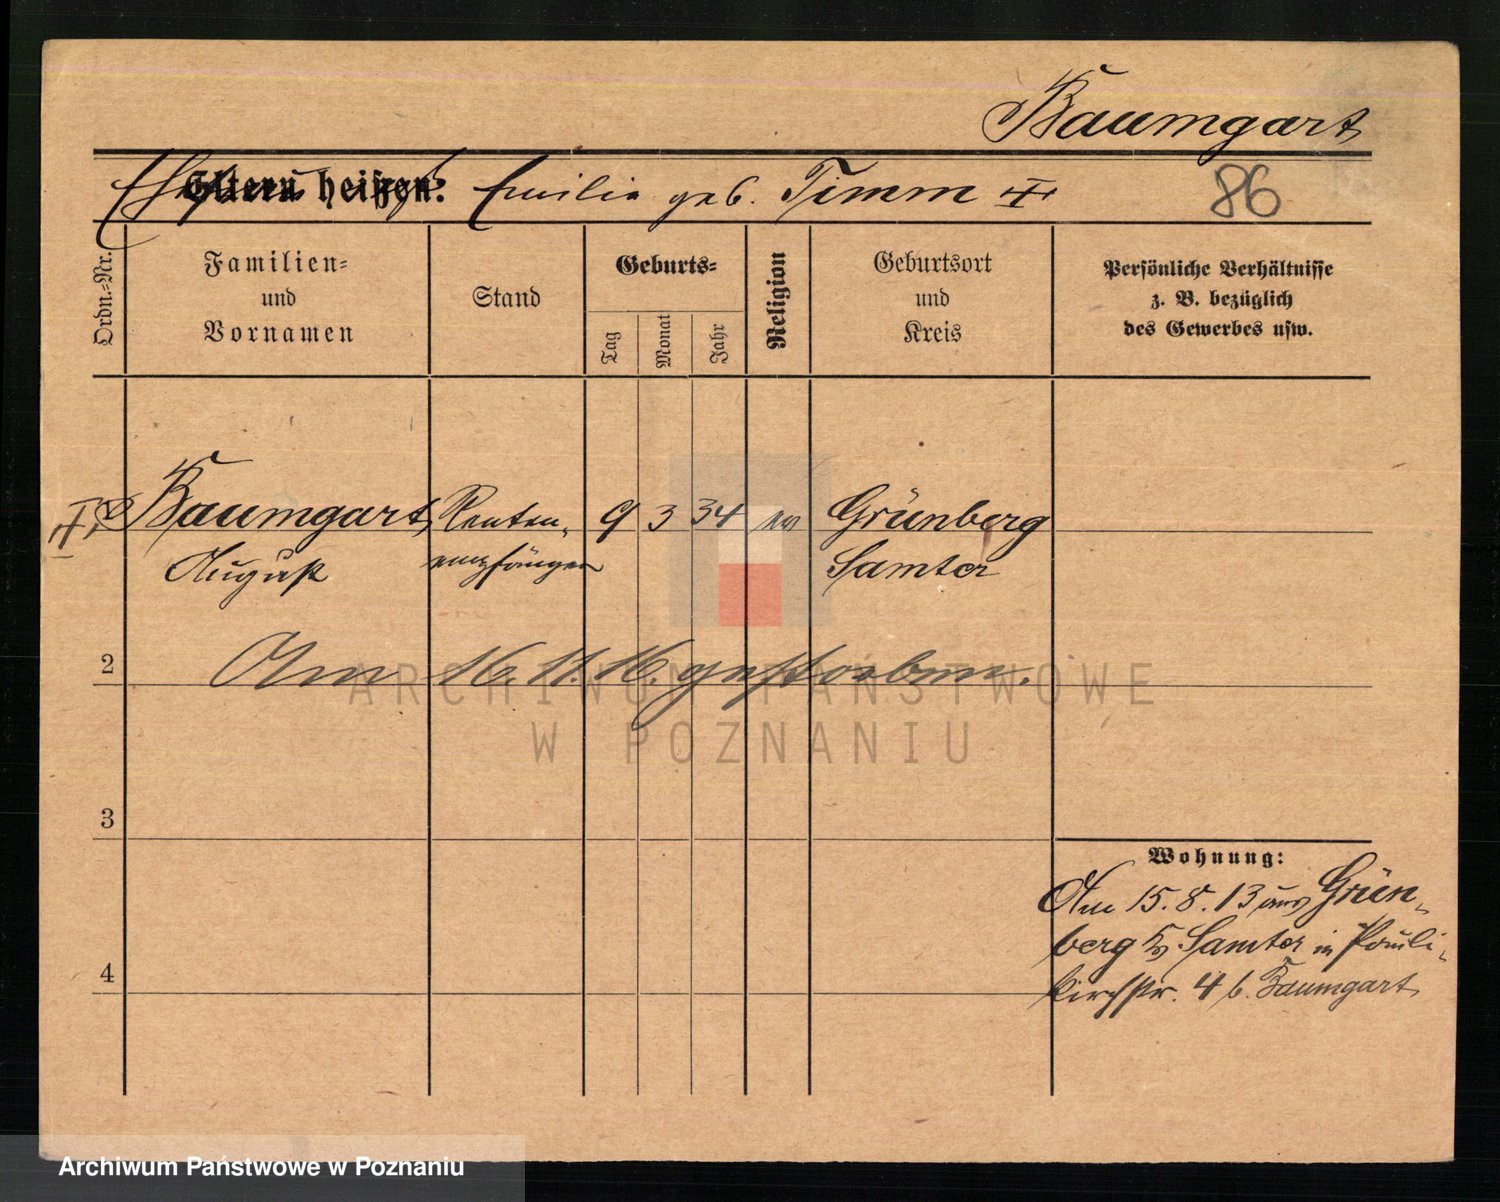 Baumgart
Eltern heißen: Emilie geb. Timm
86
Ordn.-Nr.
Familien-
und
Vornamen
Stand
Geburts-
Tag
Monat
Jahr
Religion
Geburtsort
und
Kreis
Persönliche Verhältnisse
z. B. bezüglich
des Gewerbes usw.
1 Baumgart, Renten- 9 3 34 ev Grünberg
August empfänger Samter
2 Am 16. 11. 16. gestorben.
ARCHIWUM PAŃSTWOWE
W POZNANIU
3
Wohnung:
Am 15. 8. 13 aus Grün-
berg Kr. Samter in Pauli-
4
kirchstr. 4 b. Baumgart
Archiwum Państwowe w Poznaniu